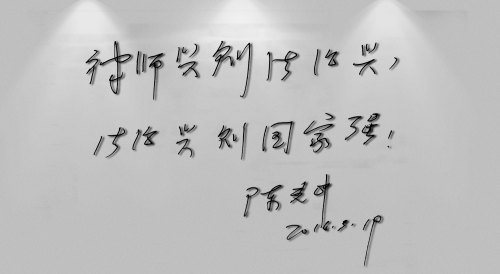 律师兴则法治兴，
法治兴则国家强！
陈光中
2014.9.19